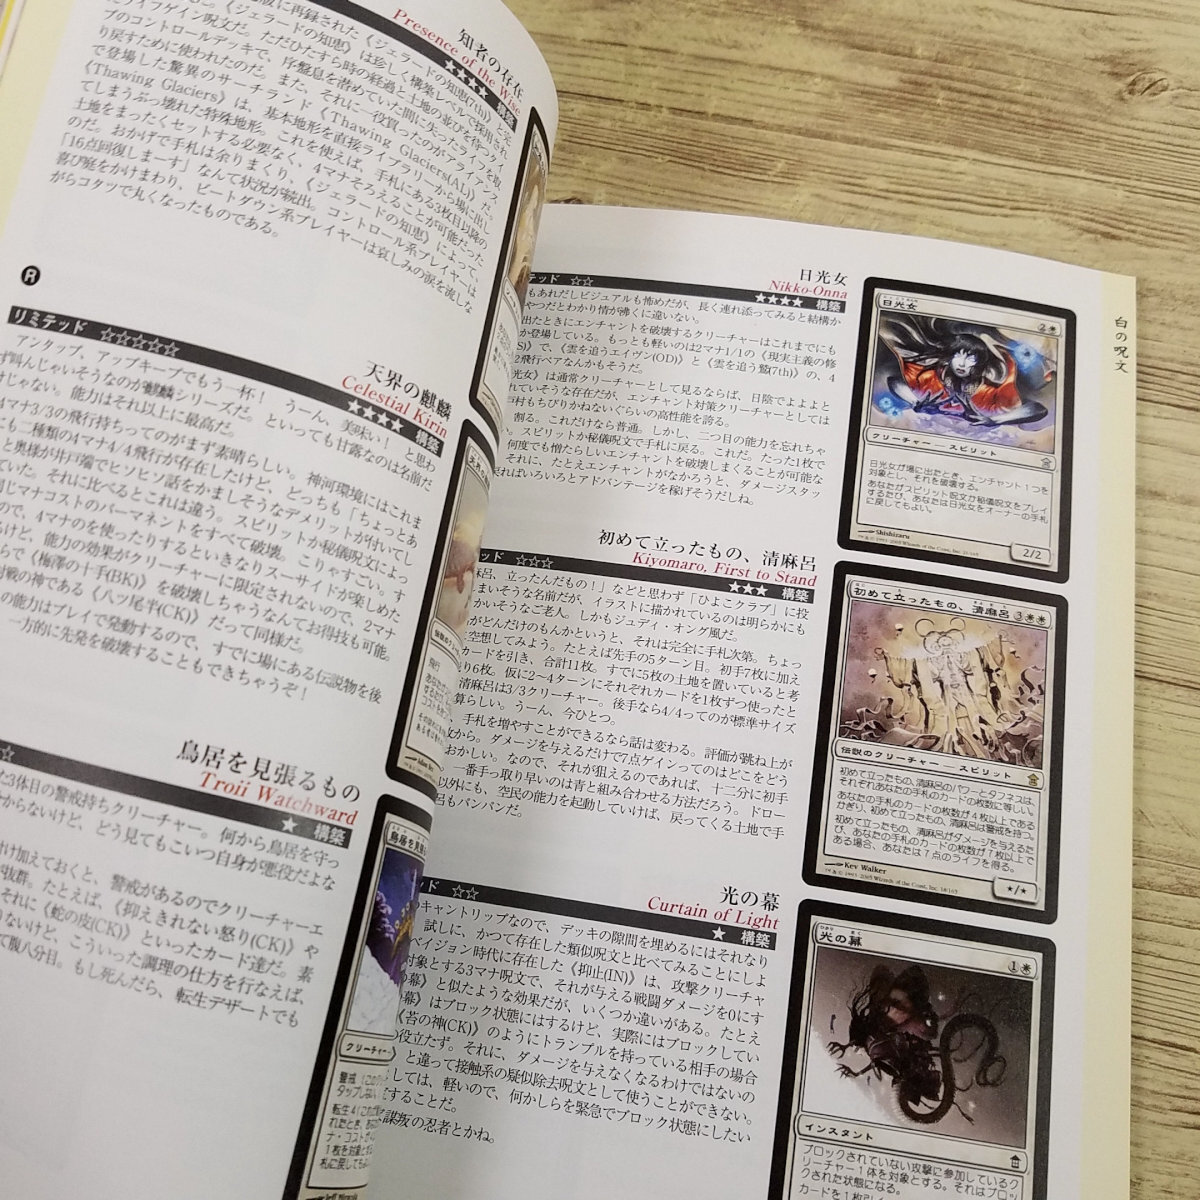 知者の存在
Presence of the Wise
★★★★ 構築
版に再録された《ジェラードの知恵》は珍しく構築レベルで採用され
ライフゲイン呪文だ。ただひたすら時の経過と土地の並びを待つタイ
プのコントロールデッキで、序盤息を潜めていた間に失ったライフを取
り戻すために使われたのだ。また、それに一役買ったのがアライアンス
で登場した驚異のサーチランド《Thawing Glaciers(AL)》だ。
《Thawing Glaciers》は、基本地形を直接ライブラリーから場に出し
てしまうぶっ壊れた特殊地形。これを使えば、手札にある3枚目以降の
土地をまったくセットする必要なく、4マナそろえることが可能だった
のだ。おかげで手札は余りまくり、《ジェラードの知恵》によって、
「16点回復しまーす」なんて状況が続出。コントロール系プレイヤーは
喜び庭をかけまわり、ビートダウン系プレイヤーは哀しみの涙を流しな
がらコタツで丸くなったものである。
R
天界の麒麟
Celestial Kirin
リミテッド ☆☆☆☆☆ ★★★★ 構築
アンタップ、アップキープでもう一杯！ うーん、美味い！ と思わ
ず叫んじゃいそうなのが麒麟シリーズだ。といっても甘露なのは名前だ
けじゃない。能力はそれ以上に最高だ。
4マナ3/3の飛行持ちってのがまず素晴らしい。神河環境にはこれま
にも二種類の4マナ4/4飛行が存在したけど、どっちも「ちょっとあ
と奥様が井戸端でヒソヒソ話をかましそうなデメリットが付いてし
ていた。それに比べるとこれは違う。スピリットか秘儀呪文によっ
同じマナコストのパーマネントをすべて破壊。こりゃすごい。す
ので、4マナのを使ったりするといきなりスーサイドが楽しめた
るけど、能力の効果がクリーチャーに限定されないので、2マナ
らで《梅澤の十手(BK)》を破壊しちゃうなんてお得技も可能。
対戦の神である《八ツ尾半(CK)》だって同様だ。
の能力はプレイで発動するので、すでに場にある伝説物を後
一方的に先発を破壊することもできちゃうぞ！
鳥居を見張るもの
Torii Watchward
★ 構築
た3体目の警戒持ちクリーチャー。何から鳥居を守っ
からないけど、どう見てもこいつ自身が悪役だよな
付け加えておくと、警戒があるのでクリーチャーエ
が抜群。たとえば、《抑えきれない怒り(CK)》や
それに《蛇の皮(CK)》といったカード達だ。素
りないけど、こういった調理の仕方を行なえば、
て腹八分目。もし死んだら、転生デザートでも
鳥居を見張
クリーチャー
飛行
白の呪文
日光女
Nikko-Onna
テッド ☆☆ ★★★★ 構築
もあれだしビジュアルも怖めだが、長く連れ添ってみると結構か
やつだとわかり情が沸くに違いない。
出たときにエンチャントを破壊するクリーチャーはこれまでにも
か登場している。もっとも軽いのは2マナ1/1の《現実主義の修
S)》で、《雲を追うエイヴン(OD)》と《雲を追う鷲(7th)》の、4
2飛行ペアなんかもそうだ。
光女》は通常クリーチャーとして見るならば、日陰でよよよと
れていそうな存在だが、エンチャント対策クリーチャーとしては
戸村もちびりかねないぐらいの高性能を誇る。
割る。これだけなら普通。しかし、二つ目の能力を忘れちゃ
い。スピリットか秘儀呪文で手札に戻る。これだ。たった1枚で
何度でも憎たらしいエンチャントを破壊しまくることが可能な
。それに、たとえエンチャントがなかろうと、ダメージスタッ
戻ればいろいろとアドバンテージを稼げそうだしね。
日光女 2
クリーチャー ― スピリット
日光女が場に出たとき、エンチャント1つを
対象とし、それを破壊する。
あなたがスピリット呪文か秘儀呪文をプレイ
するたび、あなたは日光女をオーナーの手札
に戻してもよい。
Shishizaru
2/2
初めて立ったもの、清麻呂
Kiyomaro, First to Stand
ッド ☆☆☆ ★★★ 構築
麻呂、立ったんだもの！」などと思わず「ひよこクラブ」に投
まいそうな名前だが、イラストに描かれているのは明らかにも
かいそうなご老人。しかもジュディ・オング風だ。
がどんだけのもんかというと、それは完全に手札次第。ちょっ
に空想してみよう。たとえば先手の5ターン目。初手7枚に加え
カードを引き、合計11枚。すでに5枚の土地を置いていると考
り6枚。仮に2～4ターンにそれぞれカードを1枚ずつ使ったと
清麻呂は3/3クリーチャー。後手なら4/4ってのが標準サイズ
算らしい。うーん、今ひとつ。
、手札を増やすことができるなら話は変わる。評価が跳ね上が
枚から。ダメージを与えるだけで7点ゲインってのはどこをどう
おかしい。なので、それが狙えるのであれば、十二分に初手
一番手っ取り早いのは青と組み合わせる方法だろう。ドロー
以外にも、空民の能力を起動していけば、戻ってくる土地で手
呂もバンバンだ。
初めて立ったもの、清麻呂 3
伝説のクリーチャー ― スピリット
初めて立ったもの、清麻呂のパワーとタフネスは、
それぞれあなたの手札のカードの枚数に等しい。
あなたの手札のカードの枚数が4枚以上である
かぎり、初めて立ったもの、清麻呂は警戒を持つ。
初めて立ったもの、清麻呂がダメージを与えるた
び、あなたの手札のカードの枚数が7枚以上で
ある場合、あなたは7点のライフを得る。
Kev Walker
*/*
光の幕
Curtain of Light
ッド ☆☆ ★ 構築
のキャントリップなので、デッキの隙間を埋めるにはそれなり
。試しに、かつて存在した類似呪文と比べてみることにしよ
ベイジョン時代に存在した《抑止(IN)》は、攻撃クリーチャ
対象とする3マナ呪文で、それが与える戦闘ダメージを0にす
幕》と似たような効果だが、いくつか違いがある。たとえ
幕》はブロック状態にはするけど、実際にはブロックしてい
《苔の神(CK)》のようにトランプルを持っている相手の場合
役立たず。それに、ダメージを与えなくなるわけではないの
》と違って接触系の疑似除去呪文として使うことができない。
しては、軽いので、何かしらを緊急でブロック状態にしたい
することだ。
謀叛の忍者とかね。
光の幕 1
インスタント
ブロックされていない攻撃に参加しているク
リーチャー1体を対象とする。それはブロッ
クされた状態になる。
カードを1枚引